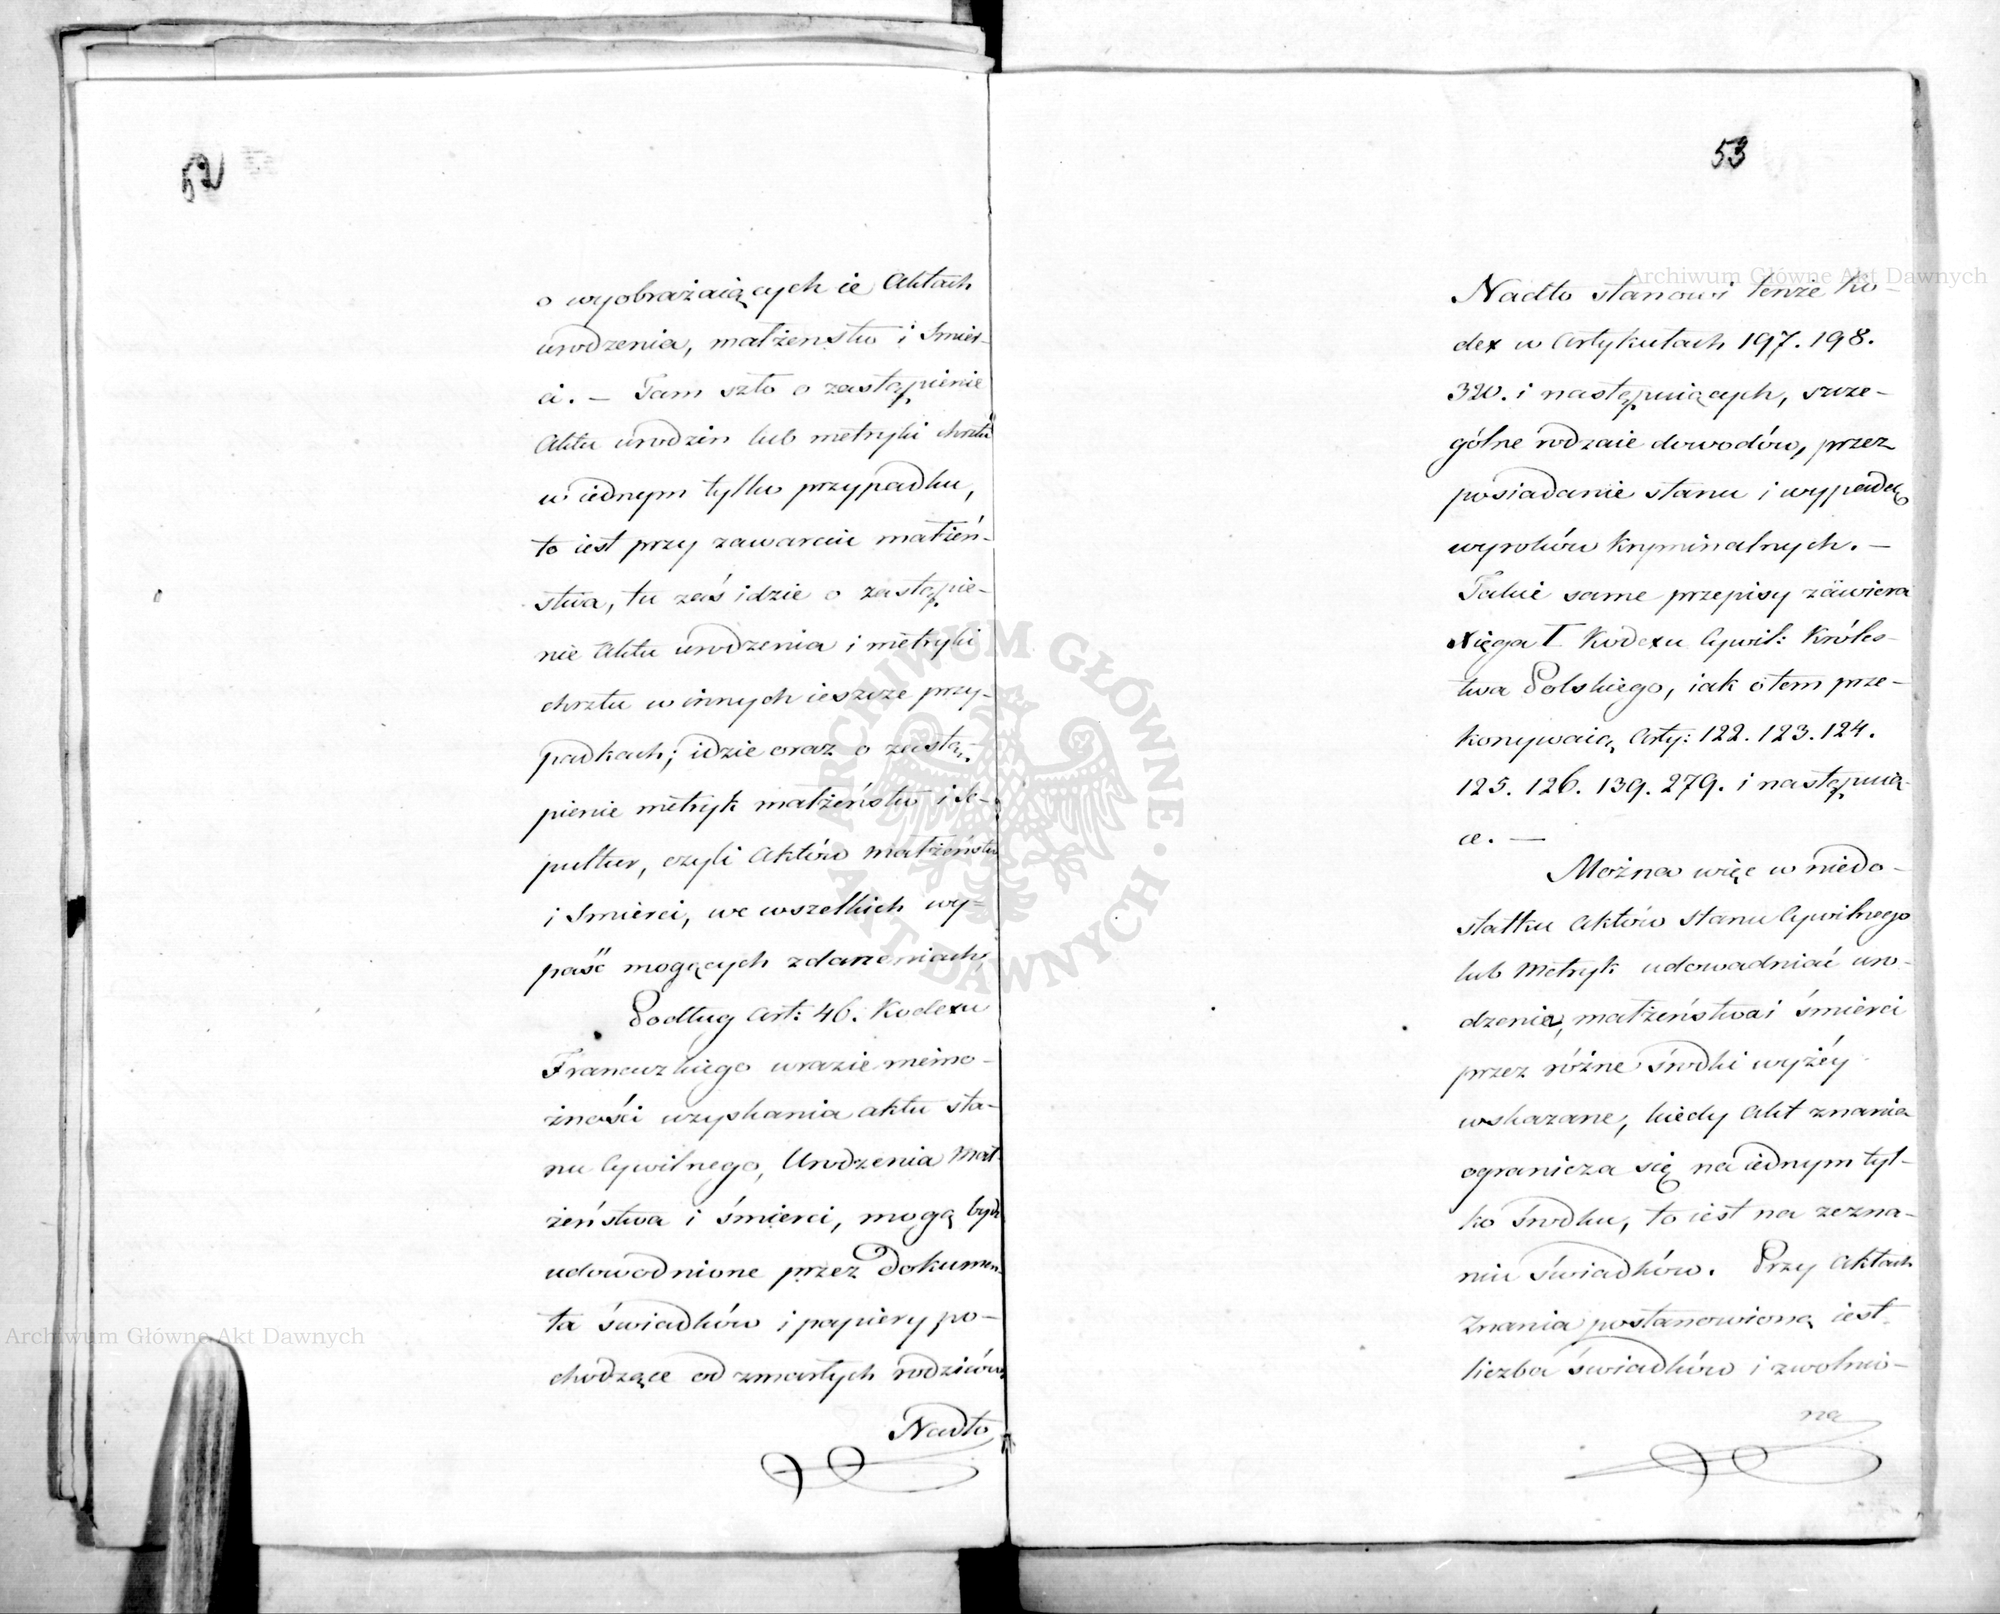 52
o wyobrażaiących ie Aktach
urodzenia, małżenstw i Smier-
ci. — Tam szło o zastąpienie
Aktu urodzin lub metryki chrztu
w iednym tylko przypadku,
to iest przy zawarciu małżeń-
stwa, tu zaś idzie o zastąpie-
nie Aktu urodzenia i metryki
chrztu w innych ieszcze przy-
padkach; idzie oraz o zastą-
pienie metryk małżeństw i Se-
pultur, czyli Aktów Małżeństw
i Smierci, we wszelkich wy-
paść mogących zdarzeniach.
Podług Art: 46. Kodexu
Francuzkiego w razie niemo-
żności uzyskania aktu sta-
nu Cywilnego, Urodzenia Mał-
żeństwa i śmierci, mogą bydź
udowodnione przez Dokumen-
ta świadków i papiery po-
chodzące od zmarłych rodziców.
Nadto
53
Nadto stanowi tenże Ko-
dex w Artykułach 197. 198.
320. i następuiących, szcze-
gólne rodzaie dowodów, przez
posiadanie stanu i wypadek
wyroków Kryminalnych. —
Takie same przepisy zawiera
Xięga I Kodexu Cywil: Króles-
twa Polskiego, iak o tem prze-
konywaią Arty: 122. 123. 124.
125. 126. 139. 279. i następuią-
ce. —
Można więc w niedo-
statku Aktów Stanu Cywilnego
lub Metryk udowadniać uro-
dzenia, małżeństwa i śmierci
przez różne środki wyżéy
wskazane, kiedy Akt znania
ogranicza się na iednym tyl-
ko środku, to iest na zezna-
niu świadków. Przy Aktach
Znania postanowioną iest
liczba świadków i zwolnio-
na
ARCHIWUM GŁÓWNE AKT DAWNYCH
Archiwum Główne Akt Dawnych
Archiwum Główne Akt Dawnych